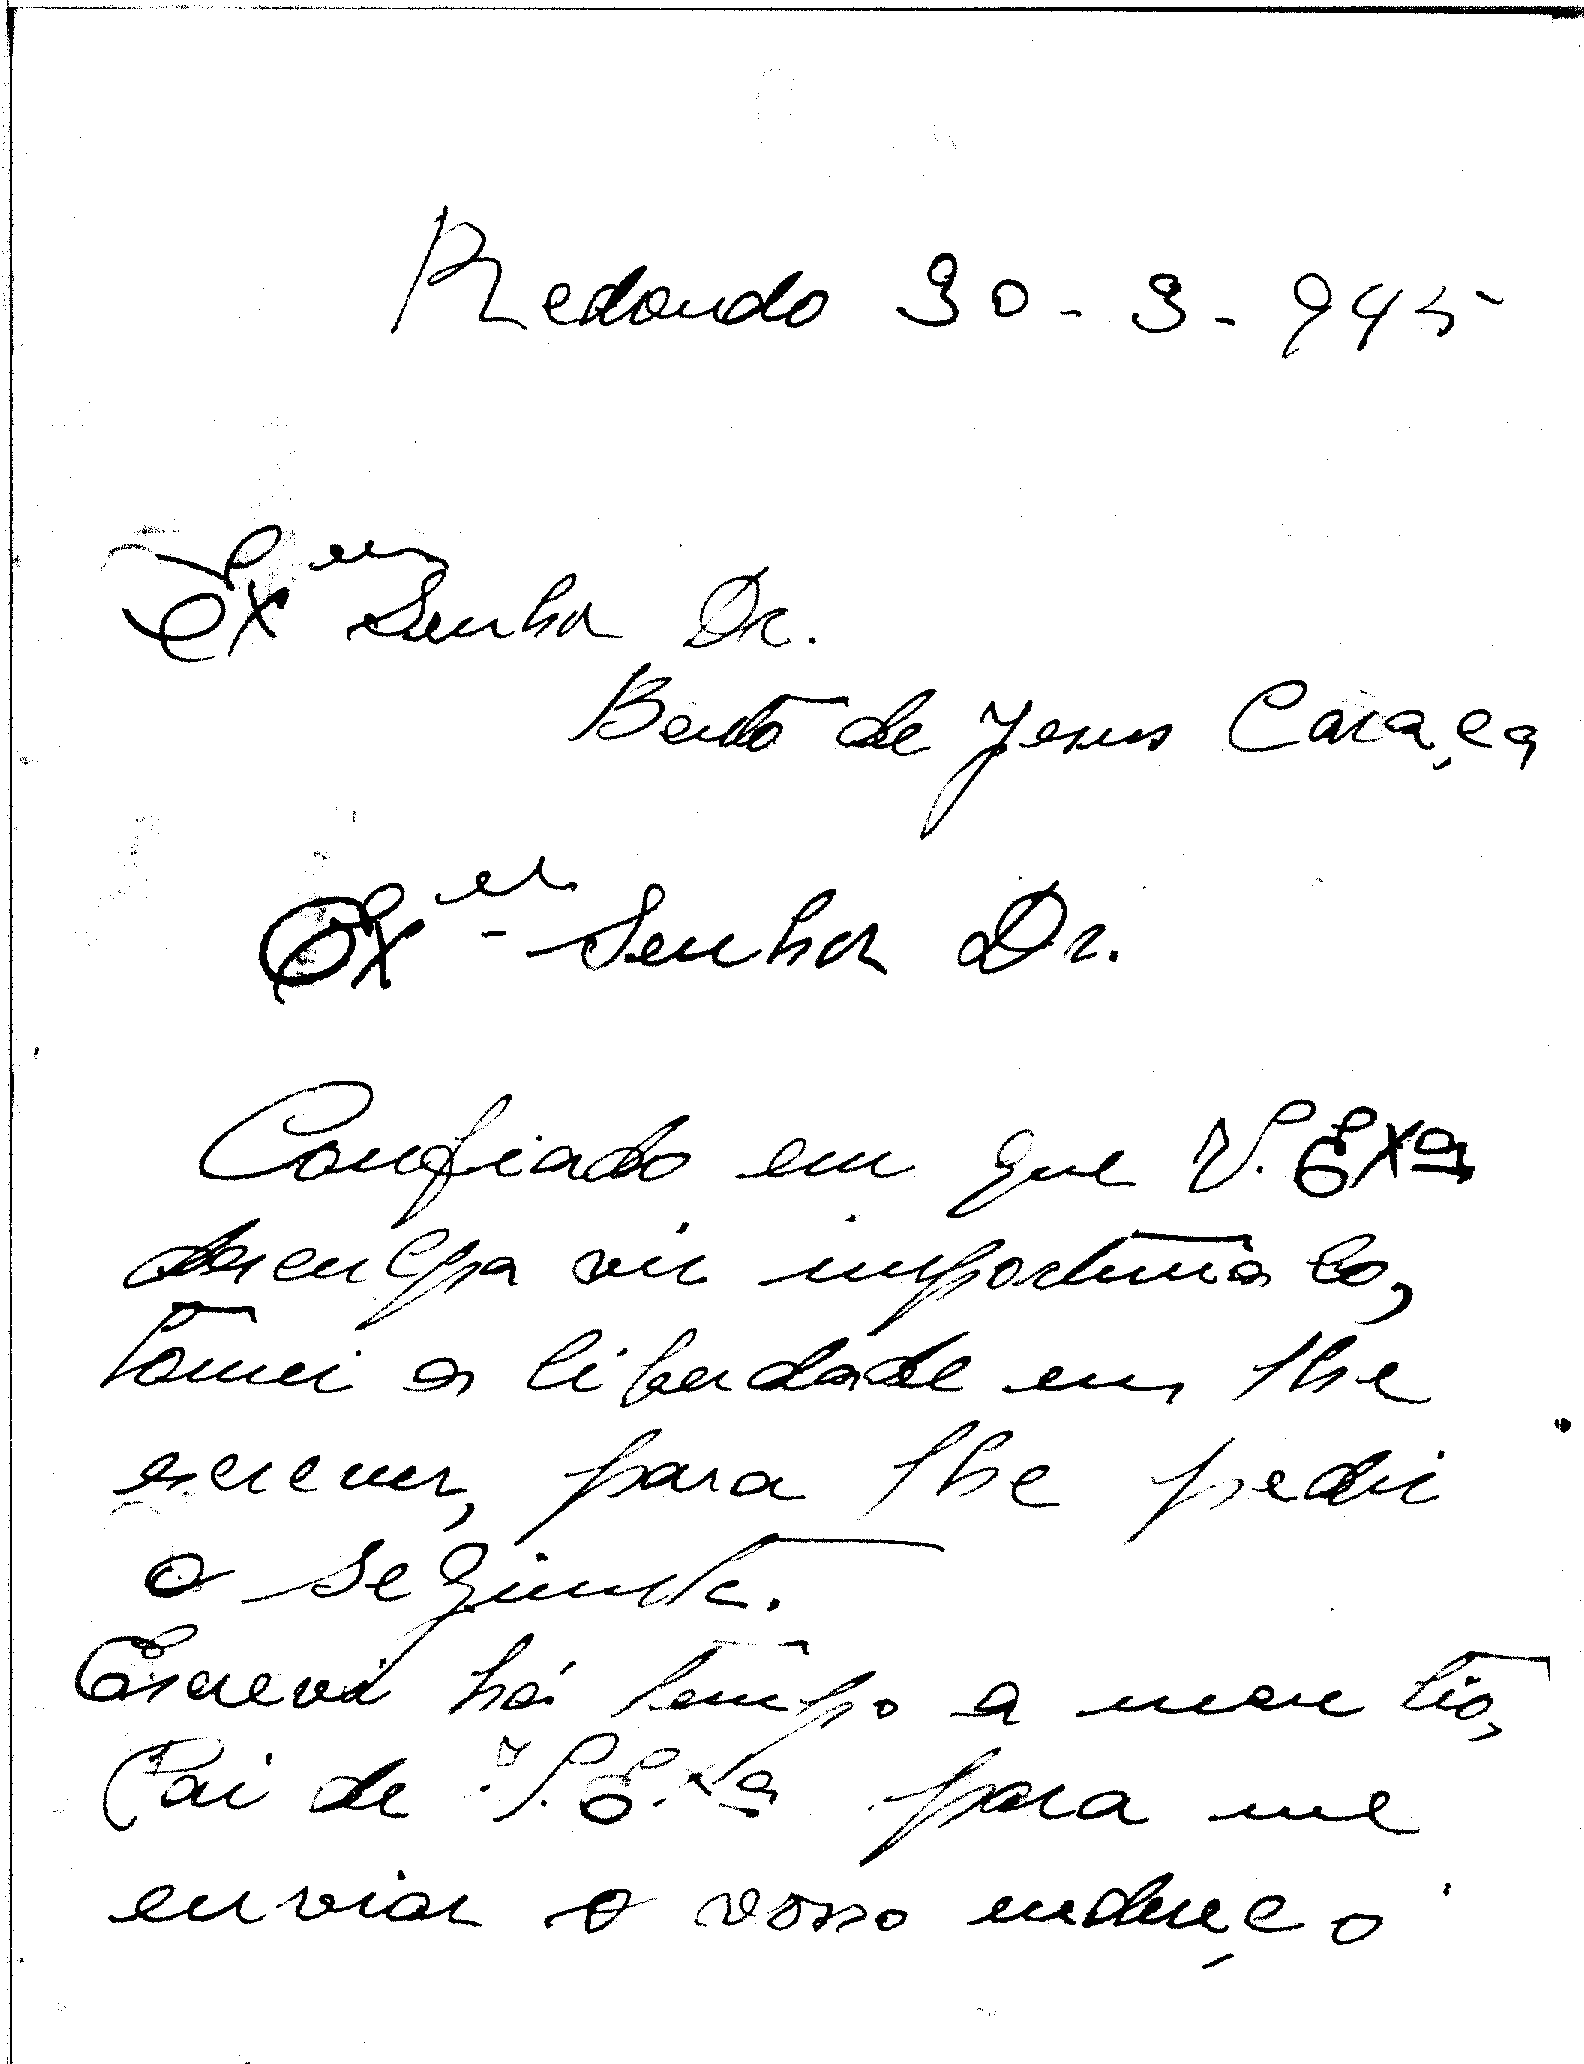 Redondo 30-3-945
Exmo Senhor Dr.
Bento de Jesus Caraça
Exmo - Senhor Dr.
Confiado em que V. Exa
desculpa vir importuna lo,
tomei a liberdade em lhe
escrever, para lhe pedir
o seguinte.
Escrevi há tempo a meu tio,
Pai de V. Exa para me
enviar o vosso endereço